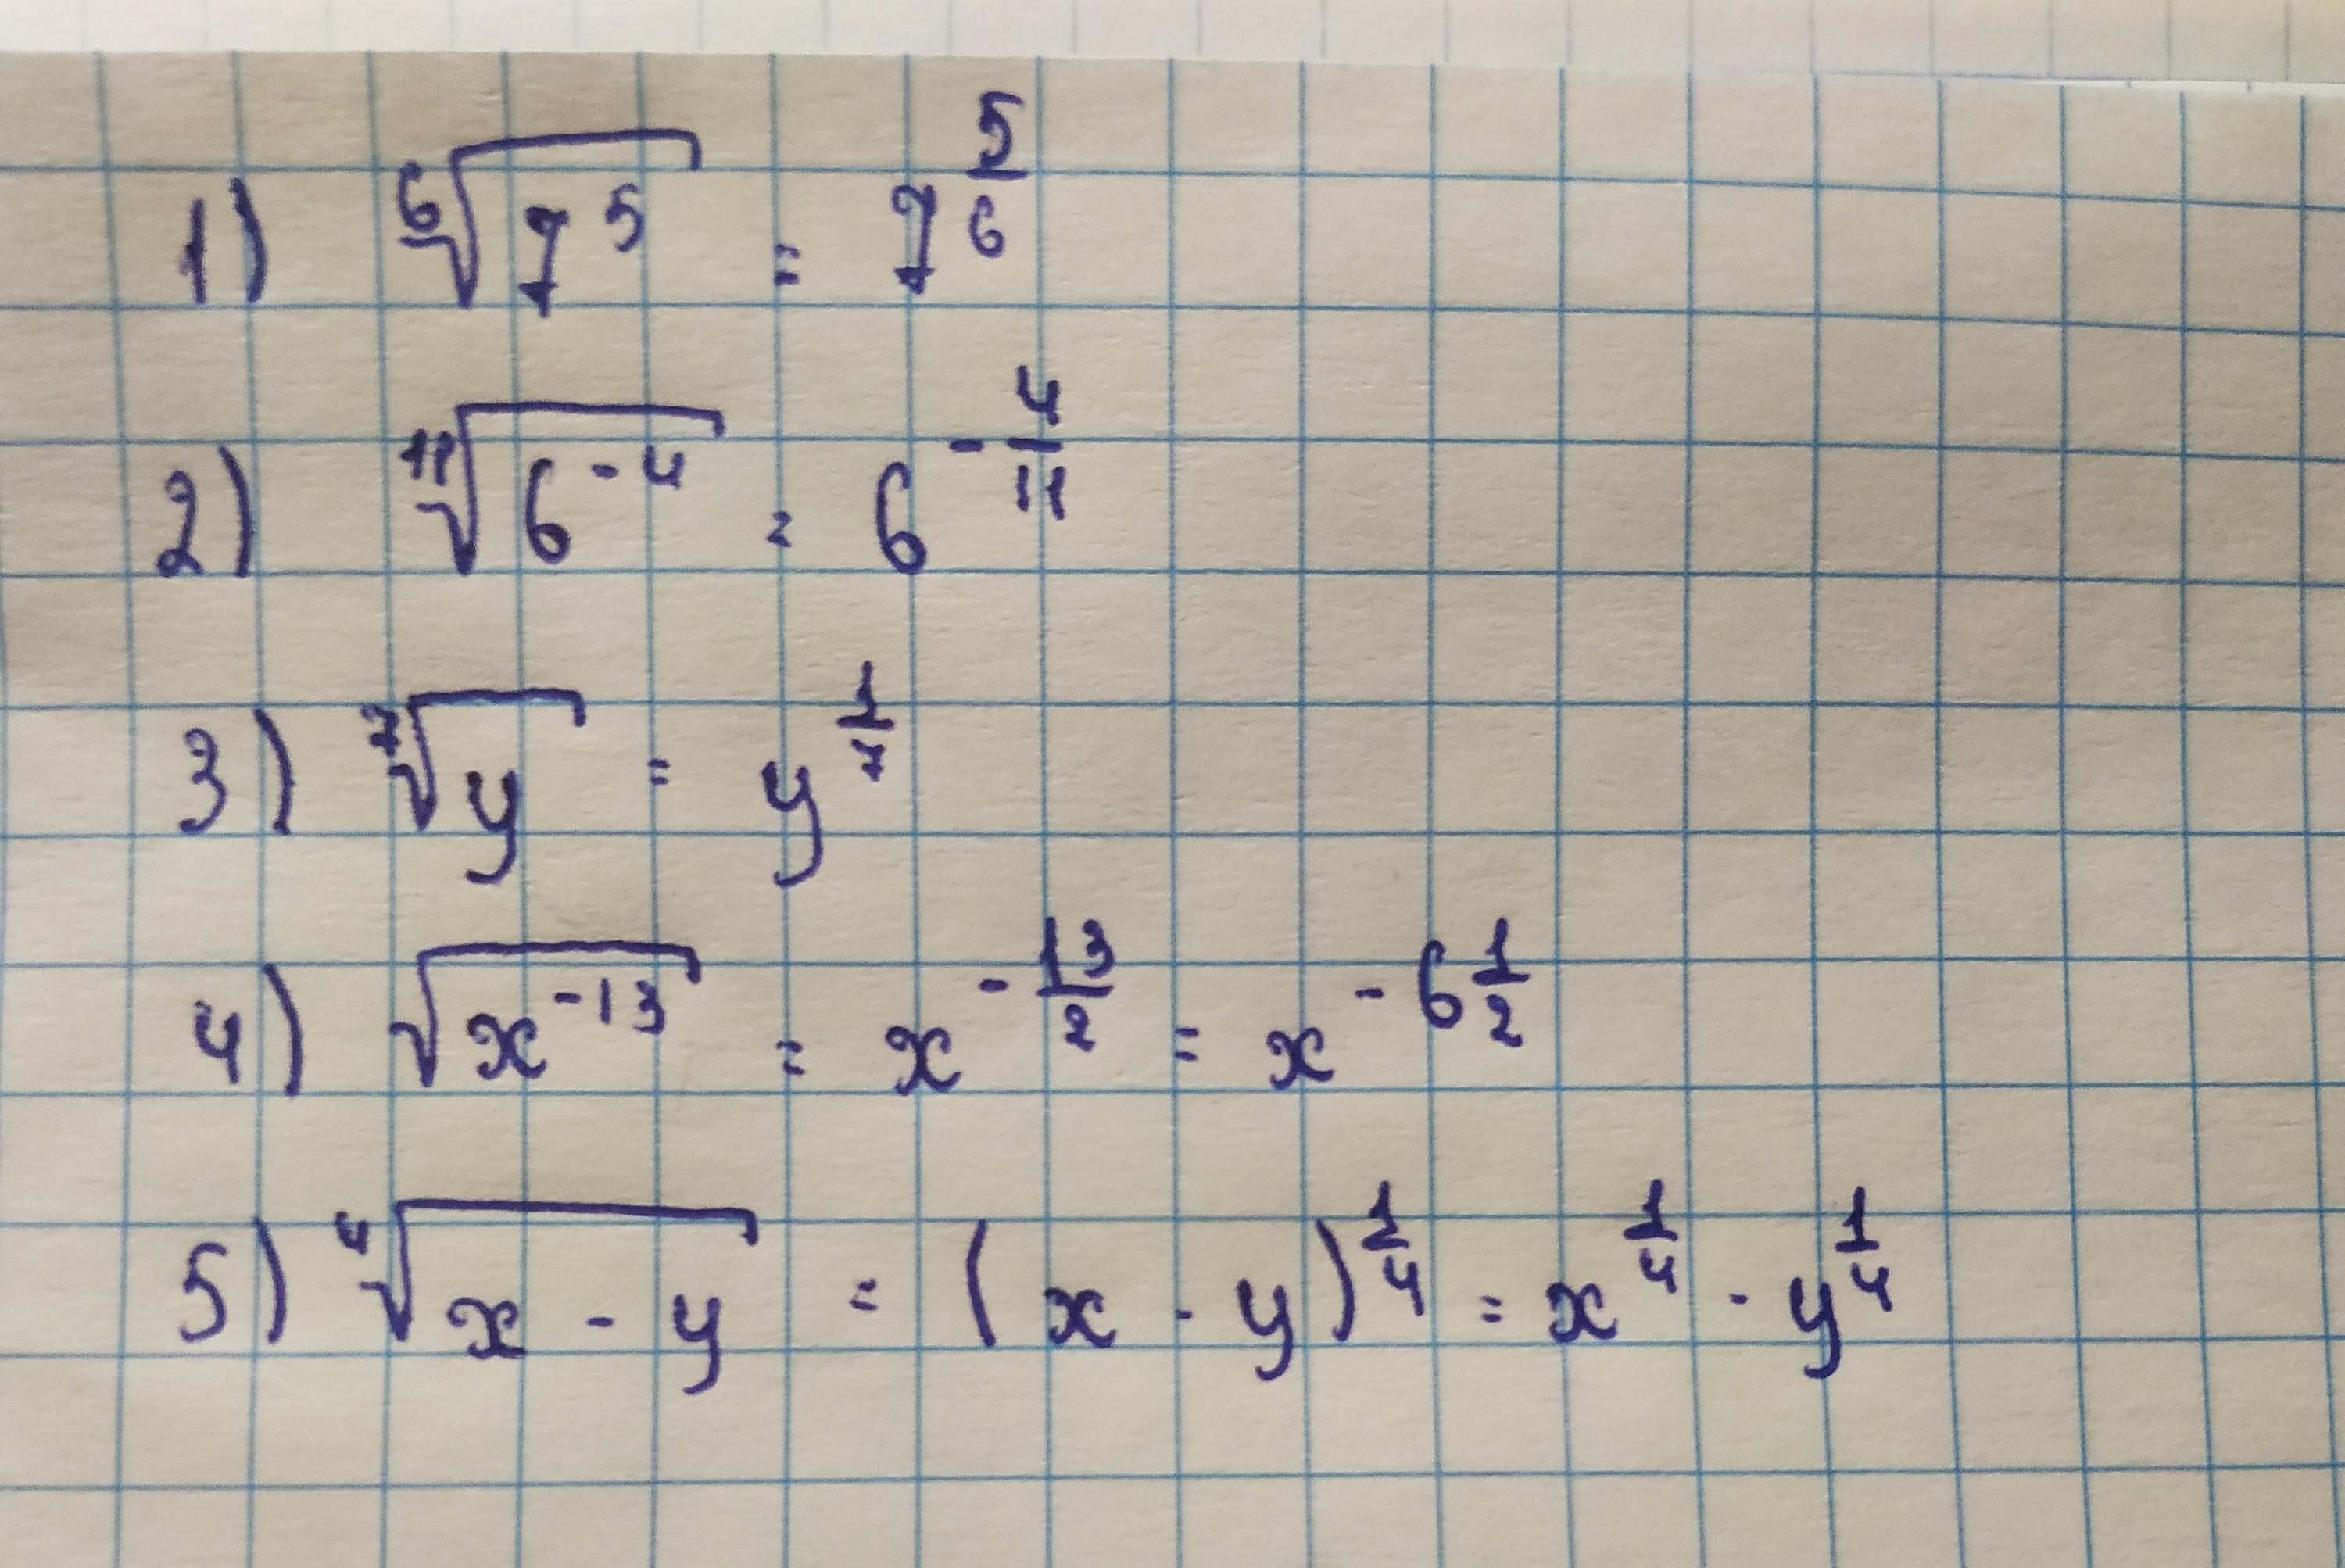 1) ⁶√(7⁵) = 7^(5/6)
2) ¹¹√(6⁻⁴) = 6^(-4/11)
3) ⁷√y = y^(1/7)
4) √(x⁻¹³) = x^(-13/2) = x^(-6 1/2)
5) ⁴√(x - y) = (x - y)^(1/4) = x^(1/4) - y^(1/4)